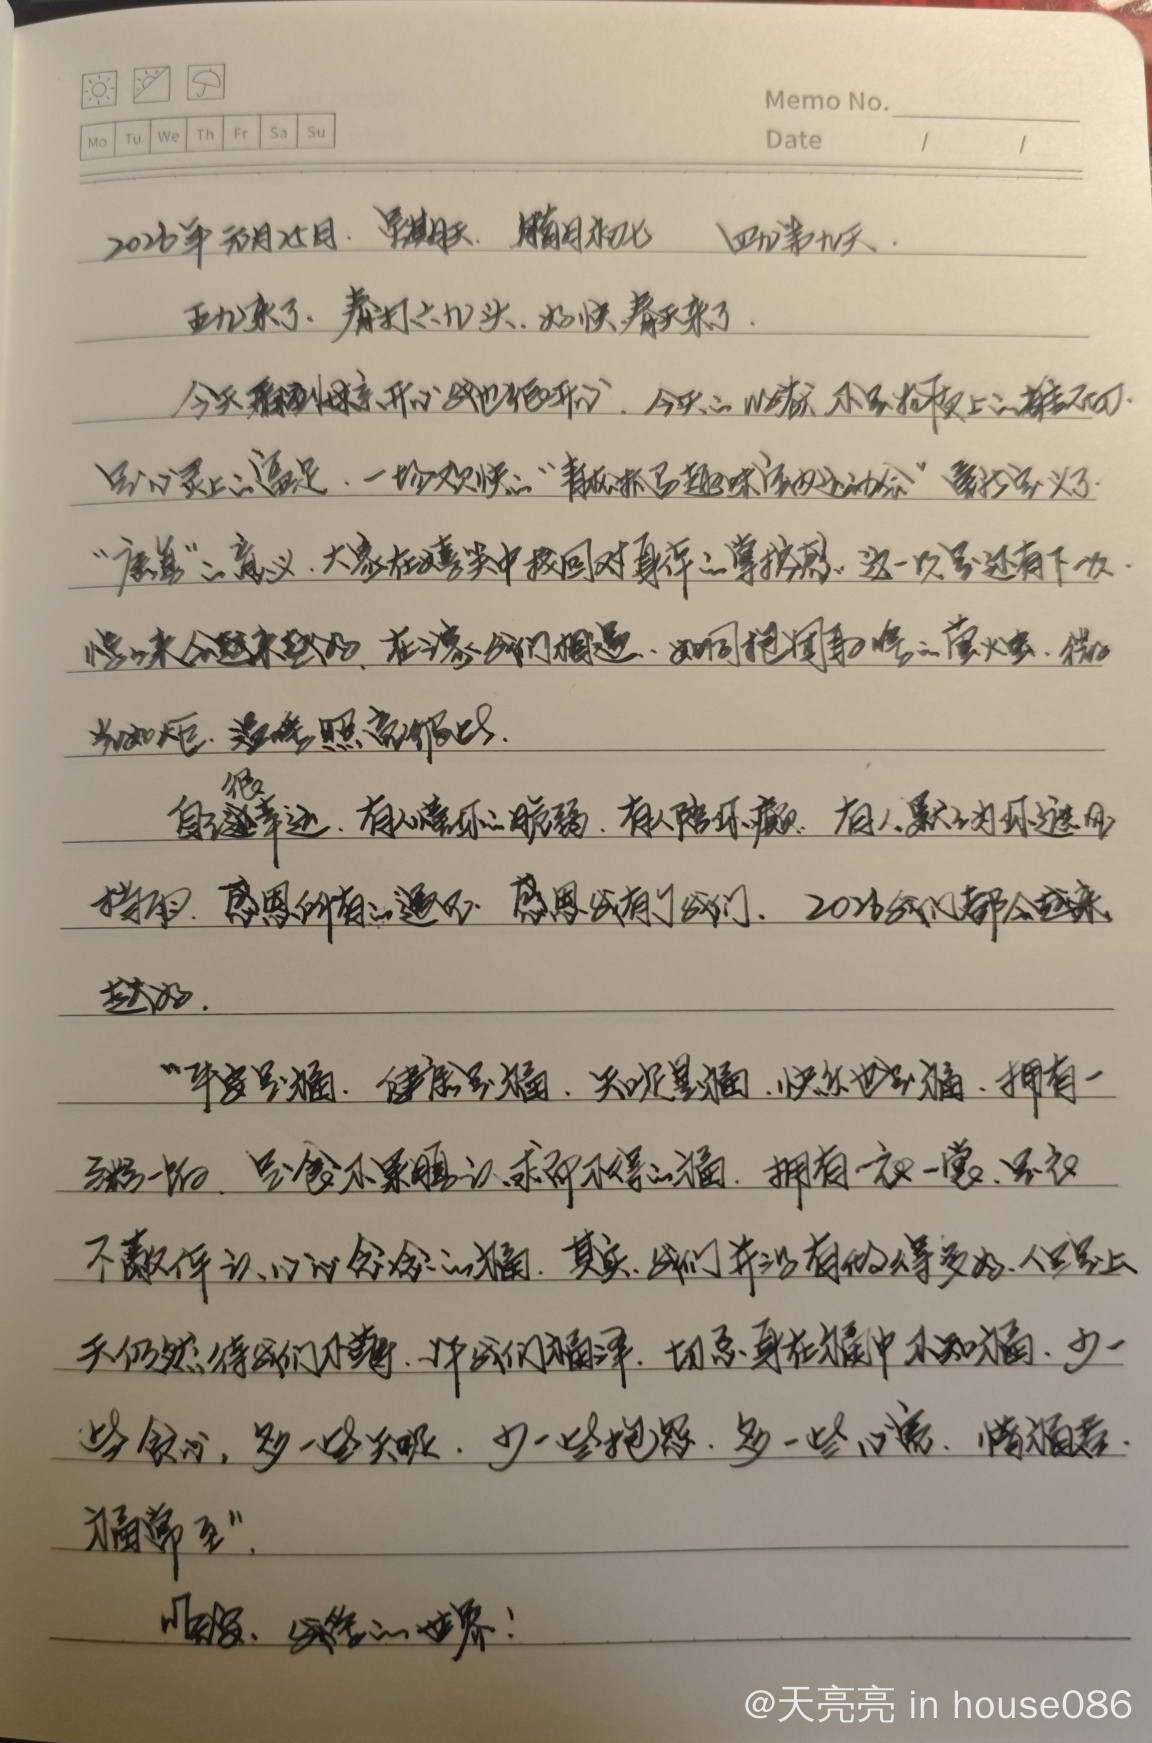 Mo Tu We Th Fr Sa Su
Memo No.
Date / /
2026年元月25日. 星期天. 腊月初七 四九第九天.
五九来了. 春打六九头. 好快. 春天来了.
今天看到大家开心我也很开心. 今天的 不是 上的
是心灵上的富足. 一场欢快的“ 趣味室内运动会” 重新定义了
“康养”的意义. 大家在嬉笑中找回对身体的掌控感. 这一次是还有下一次.
未来会越来越好. 在 我们相遇. 如同抱团取暖的萤火虫. 微
如炬. 温暖照亮彼此.
自己很幸运. 有人懂你的脆弱. 有人陪你癫. 有人默默为你遮风
挡雨. 感恩所有的遇见. 感恩我有了我们. 2026我们都会越来
越好.
“平安是福. 健康是福. 知足是福. 快乐也是福. 拥有一
粥一饭. 是食不果腹之人求而不得的福. 拥有一衣一裳. 是衣
不蔽体之人心心念念的福. 其实. 我们并没有做得多好. 但是上
天仍然待我们不薄. 许我们福泽. 切忌身在福中不知福. 少一
些贪心, 多一些知足. 少一些抱怨. 多一些心宽. 惜福者.
福常至”.
晚安. 我的世界!
@天亮亮 in house086